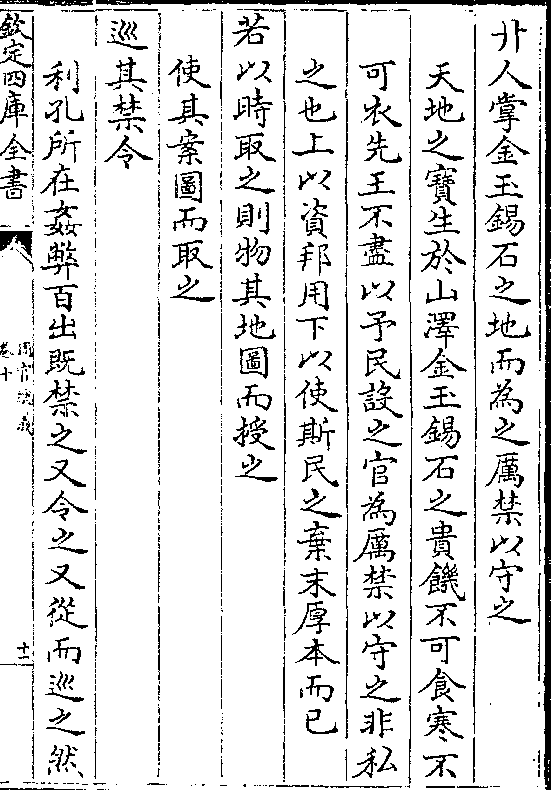 卝人掌金玉錫石之地而為之厲禁以守之
天地之寶生於山澤金玉錫石之貴饑不可食寒不
可衣先王不盡以予民設之官為厲禁以守之非私
之也上以資邦用下以使斯民之棄末厚本而已
若以時取之則物其地圖而授之
使其案圖而取之
巡其禁令
利孔所在姦弊百出既禁之又令之又從而巡之然
欽定四庫全書
卷十
十一